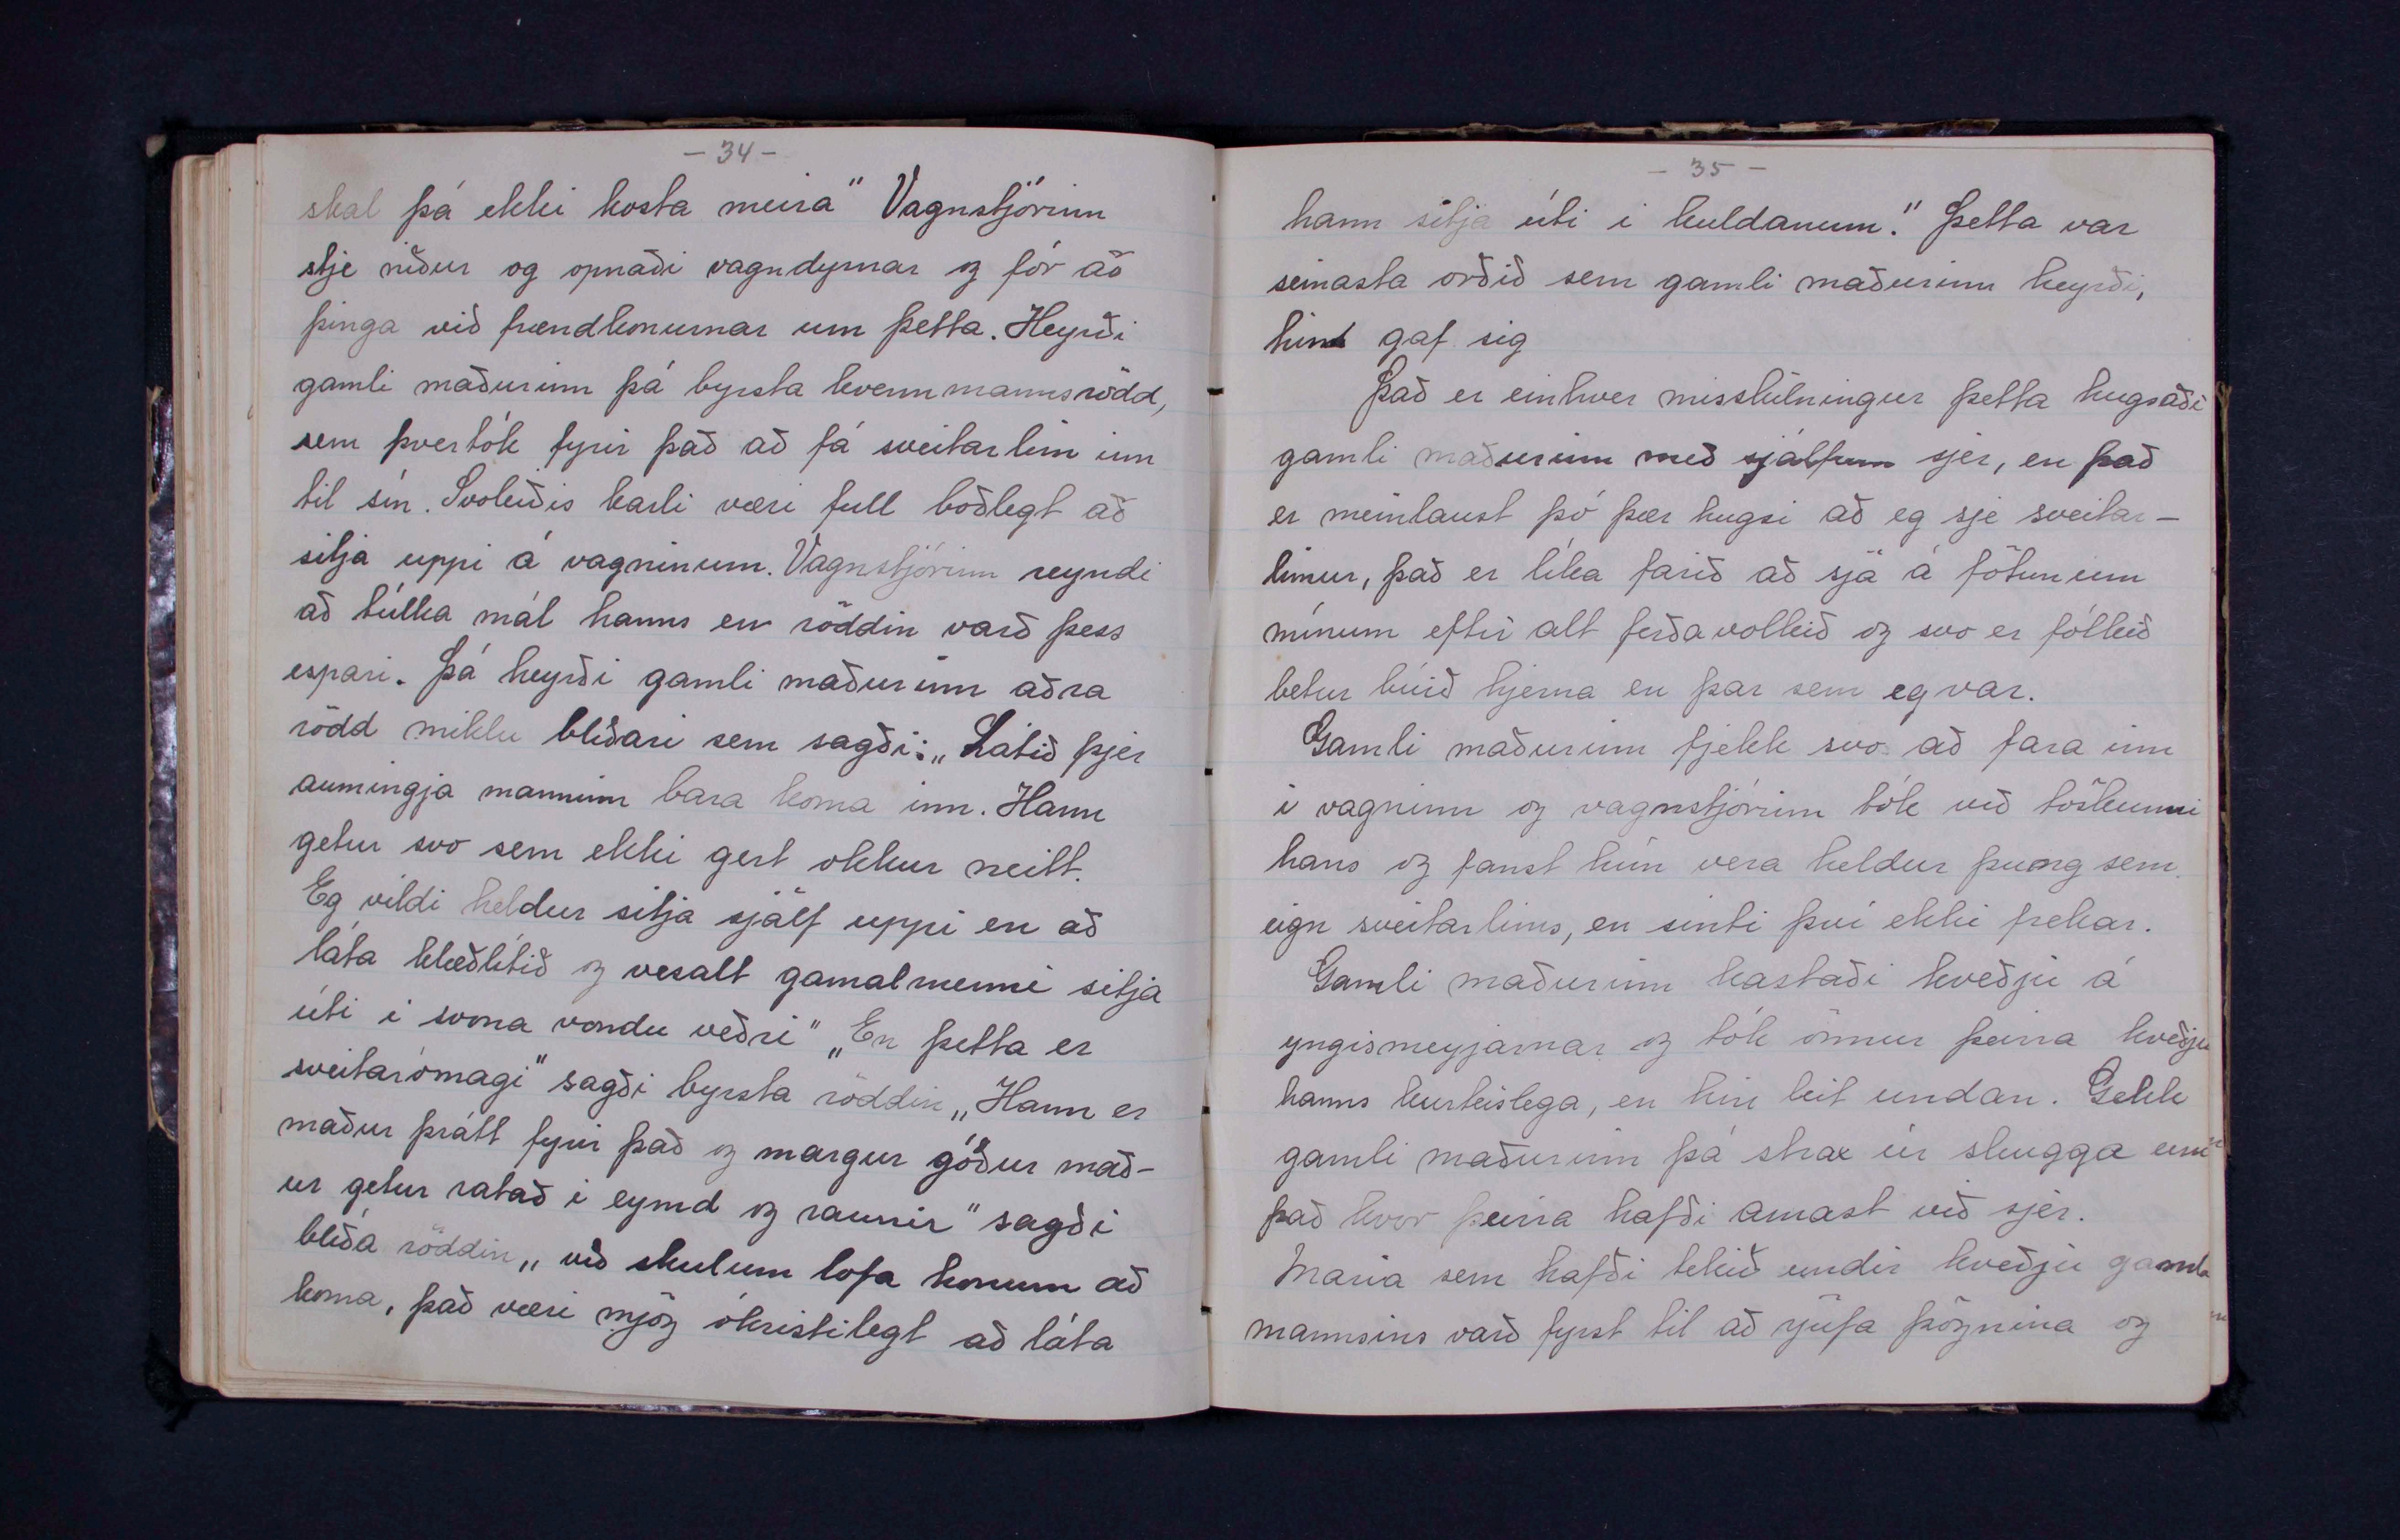 - 34 -
skal þá ekki kosta meira" Vagnstjórinn
stje niður og opnaði vagndyrnar og fór að
þinga við frændkonurnar um þetta. Heyrði
gamli maðurinn þá byrsta kvennmannsrödd,
sem þvertók fyrir það að fá sveitarlim inn
til sín. Svoleiðis karli væri full boðlegt að
sitja uppi á vagninum. Vagnstjórinn reyndi
að túlka mál hanns en röddin varð þess
espari. Þá heyrði gamli maðurinn aðra
rödd miklu blíðari sem sagði: „Látið þjer
aumingja manninn bara koma inn. Hann
getur svo sem ekki gert okkur neitt.
Eg vildi heldur sitja sjálf uppi en að
láta klæðlítið og vesalt gamalmenni sitja
úti í svona vondu veðri" „En þetta er
sveitarómagi" sagði byrsta röddin „Hann er
maður þrátt fyrir það og margur góður mað-
ur getur ratað í eymd og raunir" sagði
blíða röddin „við skulum lofa honum að
koma, það væri mjög ókristilegt að láta
- 35 -
hann sitja úti í kuldanum." Þetta var
seinasta orðið sem gamli maðurinn heyrði,
hin gaf sig
Það er einhver misskilningur þetta hugsaði
gamli maðurinn með sjálfum sjer, en það
er meinlaust þó þær hugsi að eg sje sveitar-
limur, það er líka farið að sjá á fötunum
mínum eftir alt ferðavolkið og svo er fólkið
betur búið hjerna en þar sem eg var.
Gamli maðurinn fjekk svo að fara inn
í vagninn og vagnstjórinn tók við töskunni
hans og fanst hún vera heldur þung sem
eign sveitarlims, en sinti því ekki frekar.
Gamli maðurinn kastaði kveðju á
yngismeyjarnar og tók önnur þeirra kveðju
hanns kurteislega, en hin leit undan. Gekk
gamli maðurinn þá strax úr skugga um
það hvor þeirra hafði amast við sjer.
Maria sem hafði tekið undir kveðju gamla
mannsins varð fyrst til að rjúfa þögnina og